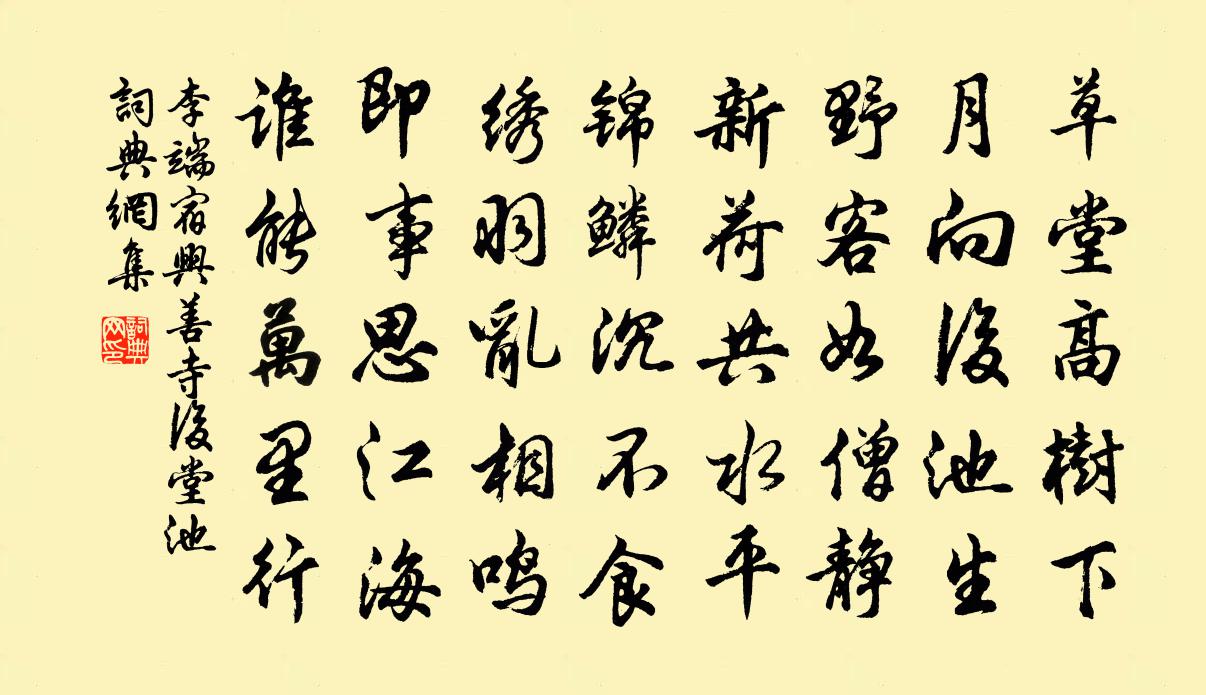 草堂高樹下
月向後池生
野客如僧静
新荷共水平
锦鳞沉不食
绣羽亂相鸣
即事思江海
谁能萬里行
李端宿興善寺後堂池
詞典網集
詞典网印